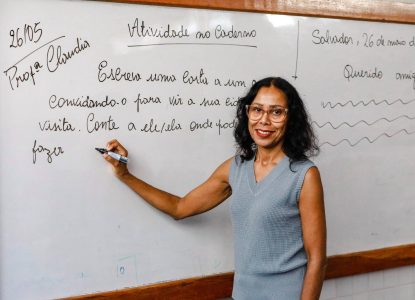 26/05
Profª Claudia
Atividade no Caderno
Escreva uma carta a um
convidando-o para vir a sua
visita. Conte a ele/ela onde
fazer
Salvador, 26 de maio d
Querido amig